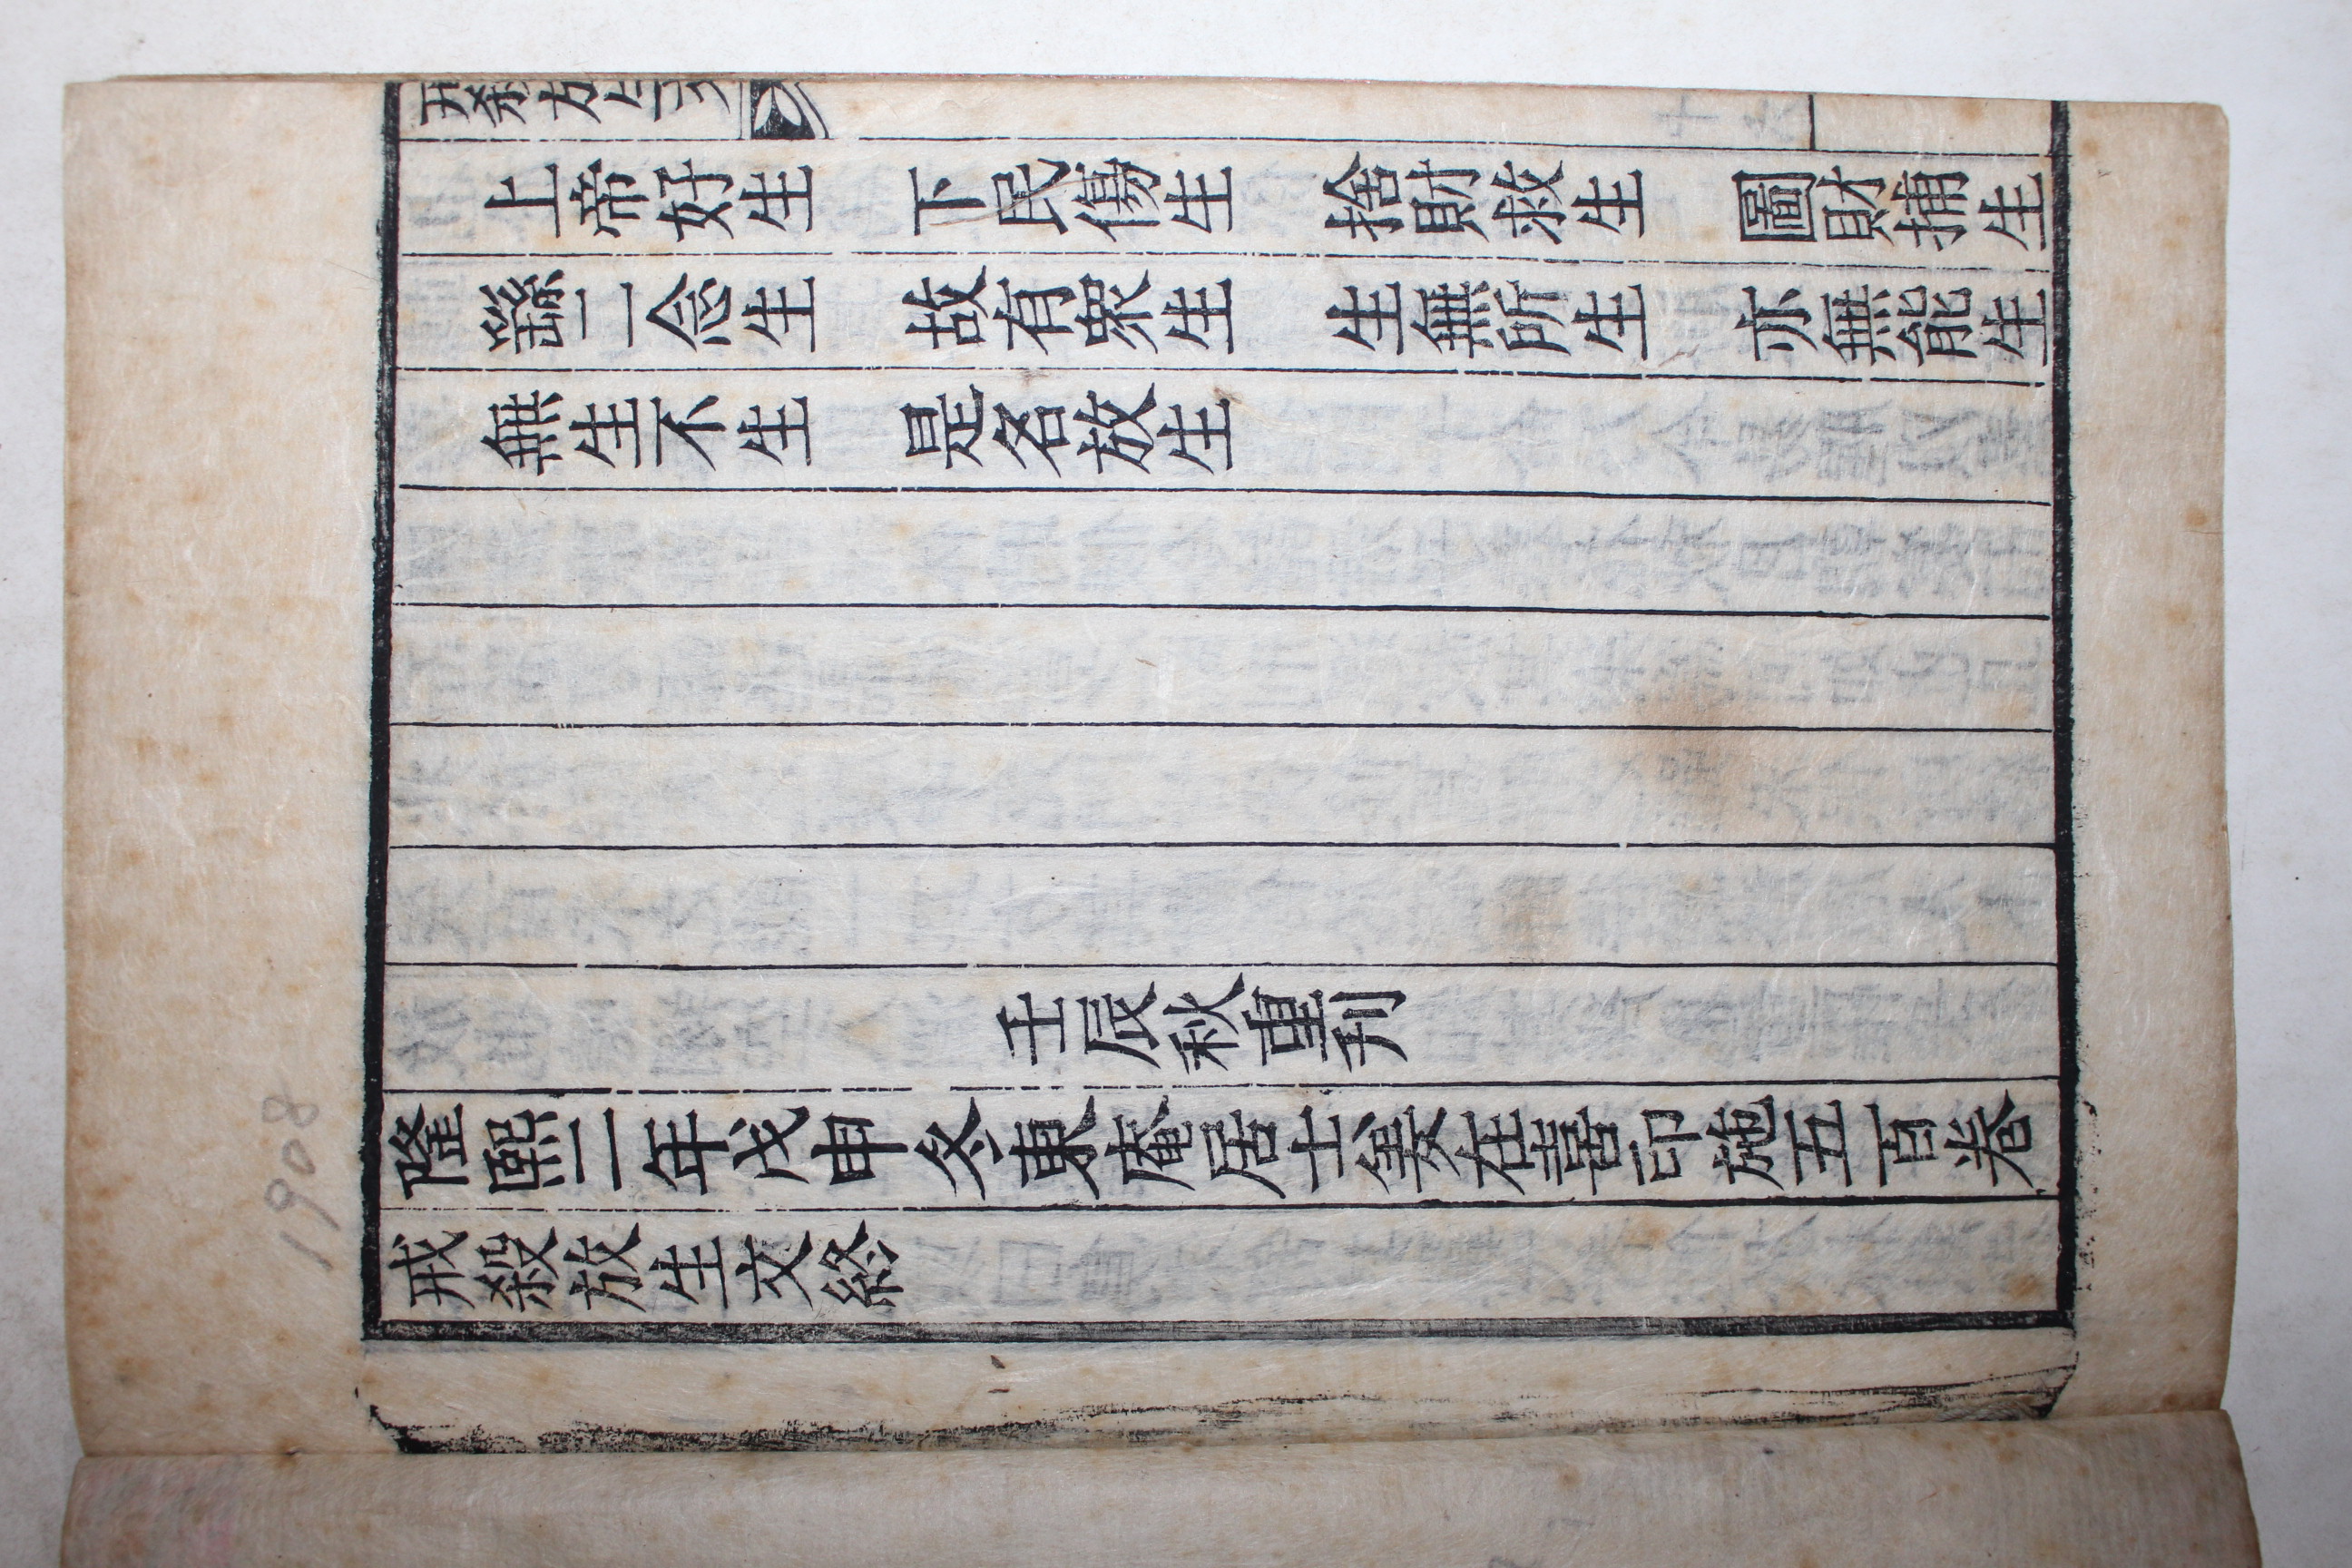 戒殺放生文
上帝好生 下民傷生 捨財救生 圖財捕生
繇一念生 故有衆生 生無所生 亦無能生
無生不生 是名放生
壬辰秋重刊
隆熙二年戊申冬東庵居士姜在喜印施五百卷
戒殺放生文終
1908